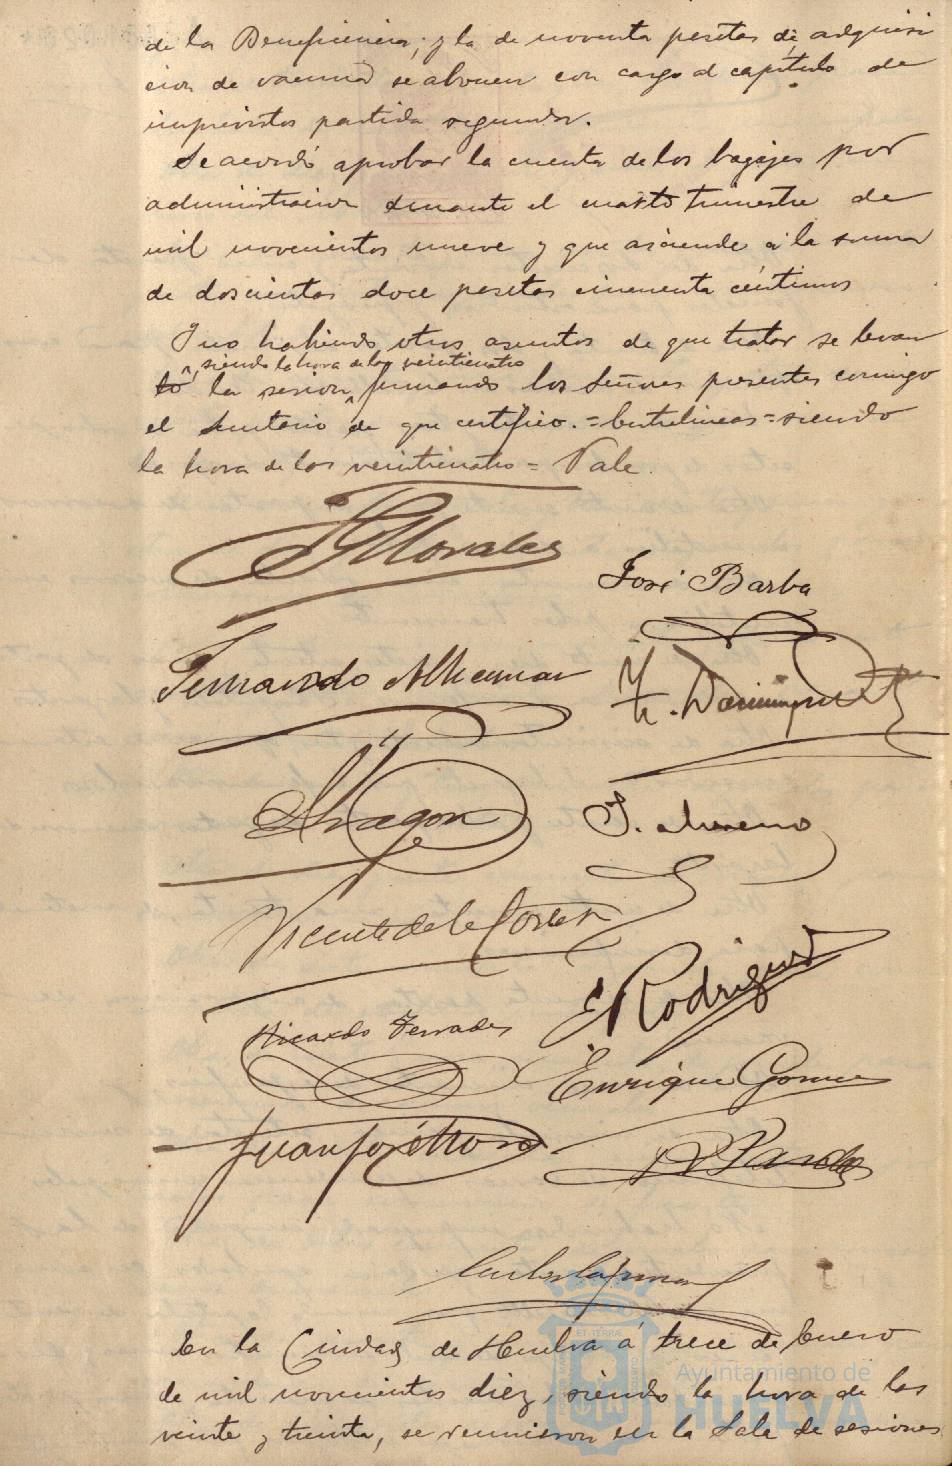 de la Beneficencia; y la de noventa pesetas de adquisi
cion de vacuna se abonen con cargo al capítulo de
imprevistos partida segunda.
Se acordó aprobar la cuenta de los bagajes por
administracion durante el cuarto trimestre de
mil novecientos nueve y que asciende á la suma
de doscientas doce pesetas cincuenta céntimos
Y no habiendo otros asuntos de que tratar se levan
siendo la hora de las veinticuatro
tó la sesion, firmando los Señores presentes conmigo
el Secretario de que certifico.=Entrelineas=siendo
la hora de las veinticuatro= Vale.
Morales
José Barba
Fernando Alheman
Fr. Dominguez
Aragon
J. Moreno
Vicente de la Corte
E. Rodriguez
Ricardo Terrades
Enrique Gomez
Juan José Mora
Pardo
En la Ciudad de Huelva á trece de Enero
de mil novecientos diez, siendo la hora de las
veinte y treinta, se reunieron en la Sala de sesiones
Ayuntamiento de
HUELVA